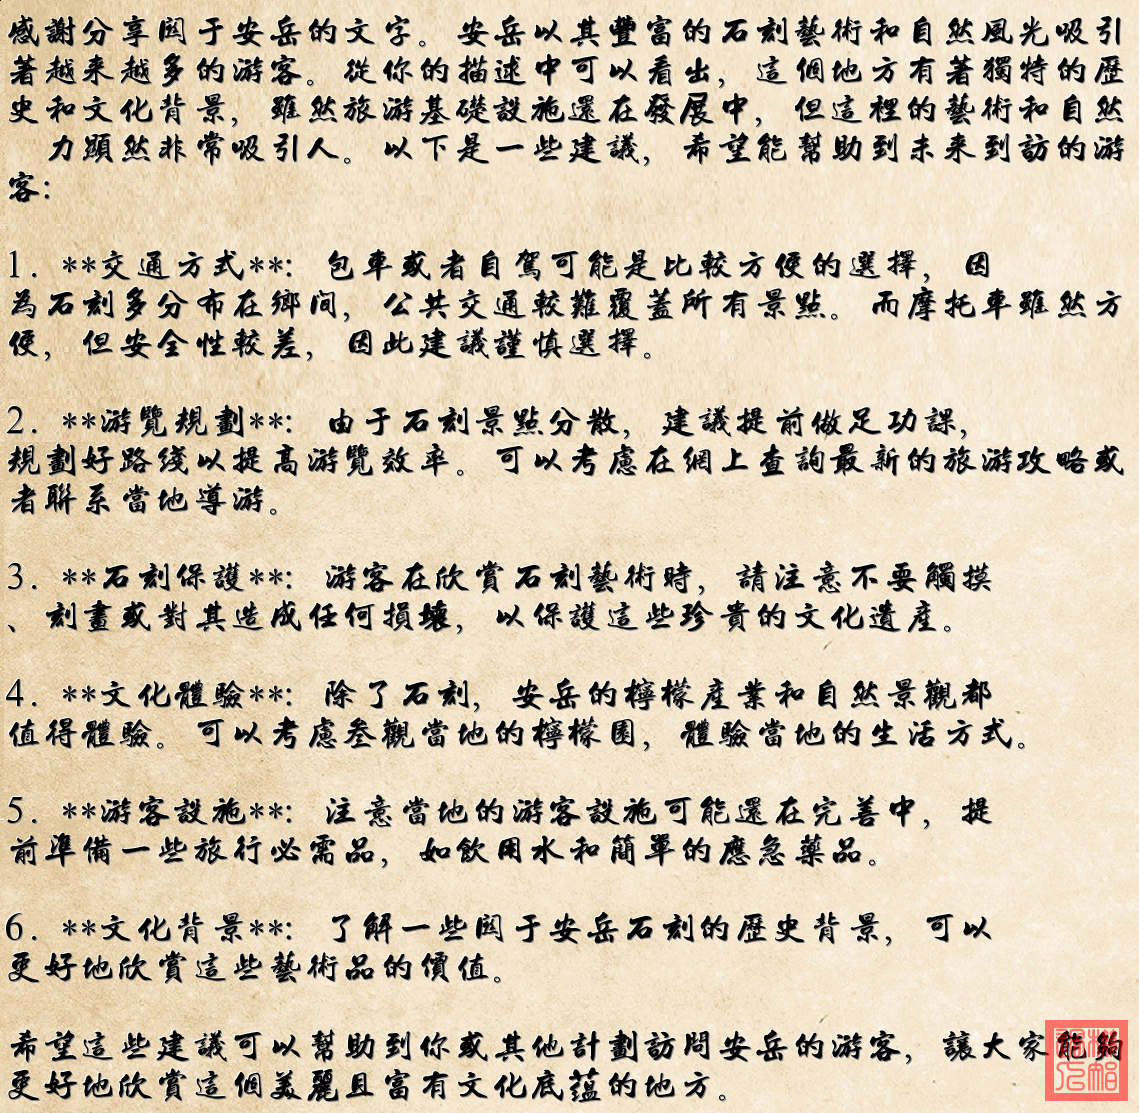 感謝分享関于安岳的文字。安岳以其豐富的石刻藝術和自然風光吸引
著越来越多的游客。從你的描述中可以看出，這個地方有著獨特的歷
史和文化背景，雖然旅游基礎設施還在發展中，但這裡的藝術和自然
力顯然非常吸引人。以下是一些建議，希望能幫助到未来到訪的游
客：
1. **交通方式**：包車或者自駕可能是比較方便的選擇，因
為石刻多分布在鄉间，公共交通較難覆蓋所有景點。而摩托車雖然方
便，但安全性較差，因此建議謹慎選擇。
2. **游覽規劃**：由于石刻景點分散，建議提前做足功課，
規劃好路线以提高游覽效率。可以考慮在網上查詢最新的旅游攻略或
者聯系當地導游。
3. **石刻保護**：游客在欣賞石刻藝術時，請注意不要觸摸
、刻畫或對其造成任何損壞，以保護這些珍貴的文化遺産。
4. **文化體驗**：除了石刻，安岳的檸檬産業和自然景觀都
值得體驗。可以考慮叁觀當地的檸檬園，體驗當地的生活方式。
5. **游客設施**：注意當地的游客設施可能還在完善中，提
前準備一些旅行必需品，如飲用水和簡單的應急藥品。
6. **文化背景**：了解一些関于安岳石刻的歷史背景，可以
更好地欣賞這些藝術品的價值。
希望這些建議可以幫助到你或其他計劃訪問安岳的游客，讓大家能夠
更好地欣賞這個美麗且富有文化底蕴的地方。